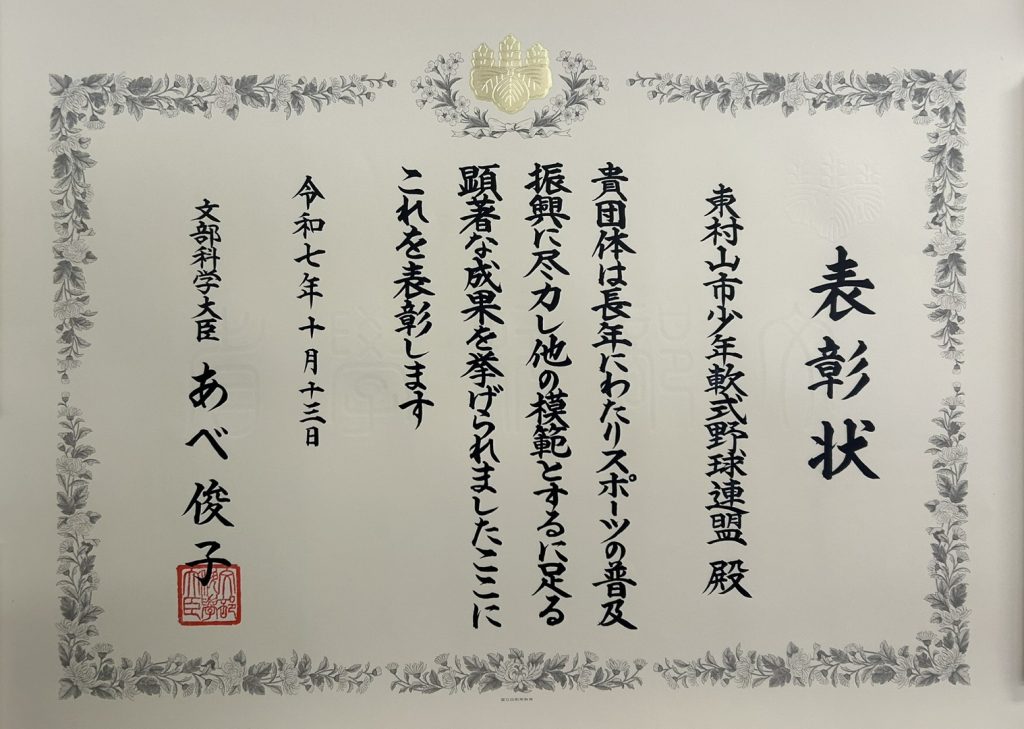 表彰状
東村山市少年軟式野球連盟 殿
貴団体は長年にわたりスポーツの普及
振興に尽力し他の模範とするに足る
顕著な成果を挙げられましたここに
これを表彰します
令和七年十月十三日
文部科学大臣 あべ俊子
文部科学大臣